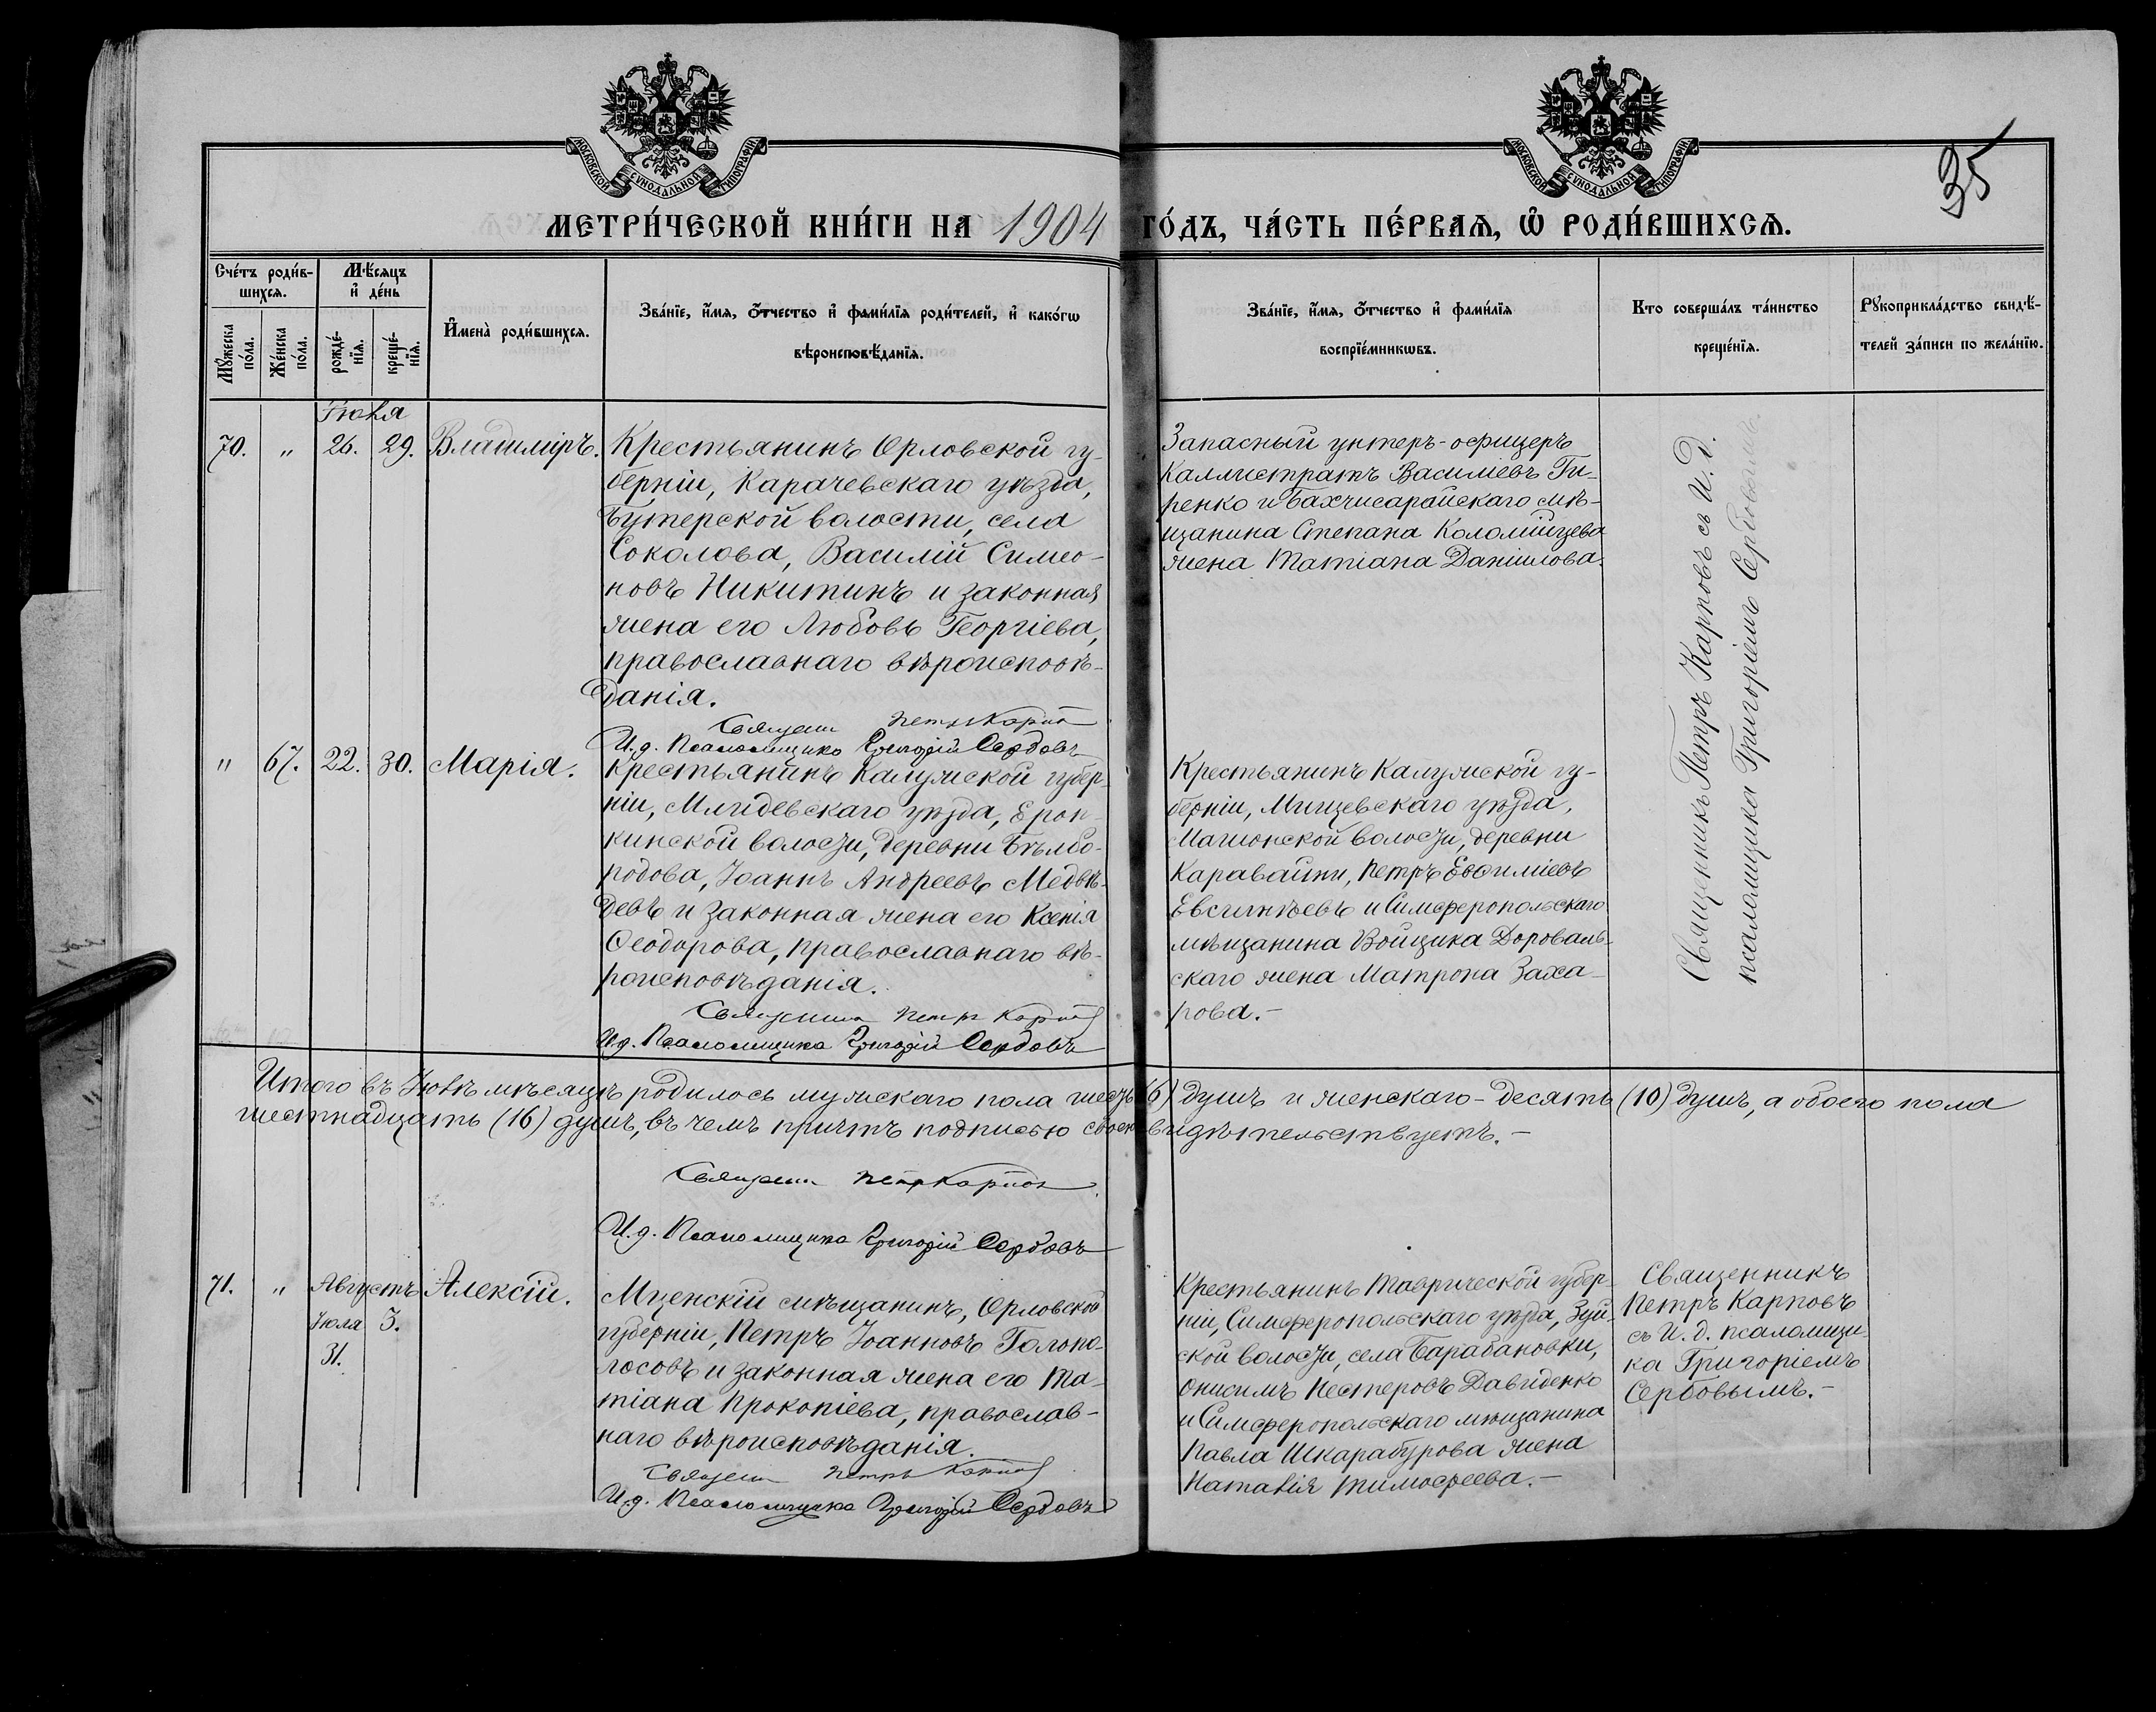 МОСКОВСКОЙ СѴНОДАЛЬНОЙ ТИПОГРАФІИ
МОСКОВСКОЙ СѴНОДАЛЬНОЙ ТИПОГРАФІИ
35
МЕТРИ́ЧЕСКОЙ КНИ́ГИ НА 1904 ГО́ДЪ, ЧА́СТЬ ПЕ́РВАѦ, Ѡ҆ РОДИ́ВШИХСѦ.
Сче́тъ роди́в-
шихсѧ.
Мꙋ́жеска по́ла.
Же́нска по́ла.
Мѣ́сѧцъ
и҆ де́нь
рожде́-
нїѧ.
креще́-
нїѧ.
И҆мена̀ роди́вшихсѧ.
Зва́нїе, и҆́мѧ, ѻ҆́тчество и҆ фамѝлїѧ роди́телей, и҆ како́гѡ
вѣроисповѣ́данїѧ.
Зва́нїе, и҆́мѧ, ѻ҆́тчество и҆ фами́лїѧ
воспрїе́мникѡвъ.
Кто соверша́лъ та́инство
креще́нїѧ.
Рꙋкоприкла́дство свидѣ́-
телей за́писи по жела́нїю.
Іюля
70. " 26. 29. Владиміръ.
Крестьянинъ Орловской гу-
берніи, Карачевскаго уѣзда,
Бутерской волости, села
Соколова, Василій Симео-
новъ Никитинъ и законная
жена его Любовь Георгіева,
православнаго вѣроисповѣ-
данія.
Священ Петръ Карпов
И.д. Псаломщика Григорій Сербовъ
Запасный унтеръ-офицеръ
Каллистратъ Василіевъ Ги-
ренко и Бахчисарайскаго мѣ-
щанина Степана Коломійцева
жена Татіана Даніилова.
Священникъ Петръ Карповъ съ И.д.
псаломщика Григоріемъ Сербовымъ.
" 67. 22. 30. Марія.
Крестьянинъ Калужской губер-
ніи, уѣзда,
кинской волости, деревни Бѣлобо-
родова, Іоаннъ Андреевъ Медвѣ-
девъ и законная жена его Ксенія
Ѳеодорова, православнаго вѣ-
роисповѣданія.
Священник Петр Карпов
И.д. Псаломщика Григорій Сербовъ
Крестьянинъ Калужской гу-
берніи, уѣзда,
волости, деревни
Каравайки, Петръ Евѳиміевъ
Евсигнѣевъ и Симферопольскаго
мѣщанина Войцика Дороваль-
скаго жена Матрона Заха-
рова.-
Итого въ Іюлѣ мѣсяцѣ родилось мужскаго пола шесть (6) душъ и женскаго - десять (10) душъ, а обоего пола
шестнадцать (16) душъ, въ чемъ причтъ подписью своею свидѣтельствуетъ.-
Священ Петръ Карпов
И.д. Псаломщика Григорій Сербовъ
71. " Августъ Алексій.
Іюля 3.
31.
Мценскій мѣщанинъ, Орловской
губерніи, Петръ Іоанновъ Голопо-
лосовъ и законная жена его Та-
тіана Прокопіева, православ-
наго вѣроисповѣданія.
Священ Петръ Карпов
И.д. Псаломщика Григорій Сербовъ
Крестьянинъ Таврической губер-
ніи, Симферопольскаго уѣзда, Зуй-
ской волости, села Барабановки,
Онисимъ Нестеровъ Давиденко
и Симферопольскаго мѣщанина
Павла Шкарабурова жена
Наталія Тимофеева.-
Священникъ
Петръ Карповъ
съ И.д. псаломщи-
ка Григоріемъ
Сербовымъ.-